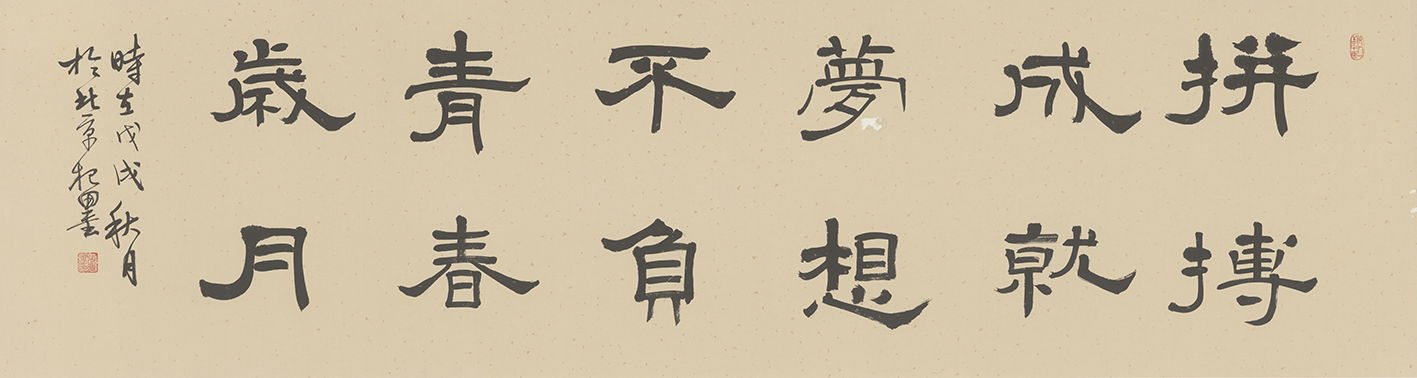 拼搏
成就
夢想
不負
青春
歲月
時在戊戌秋月
於北京杞田墨